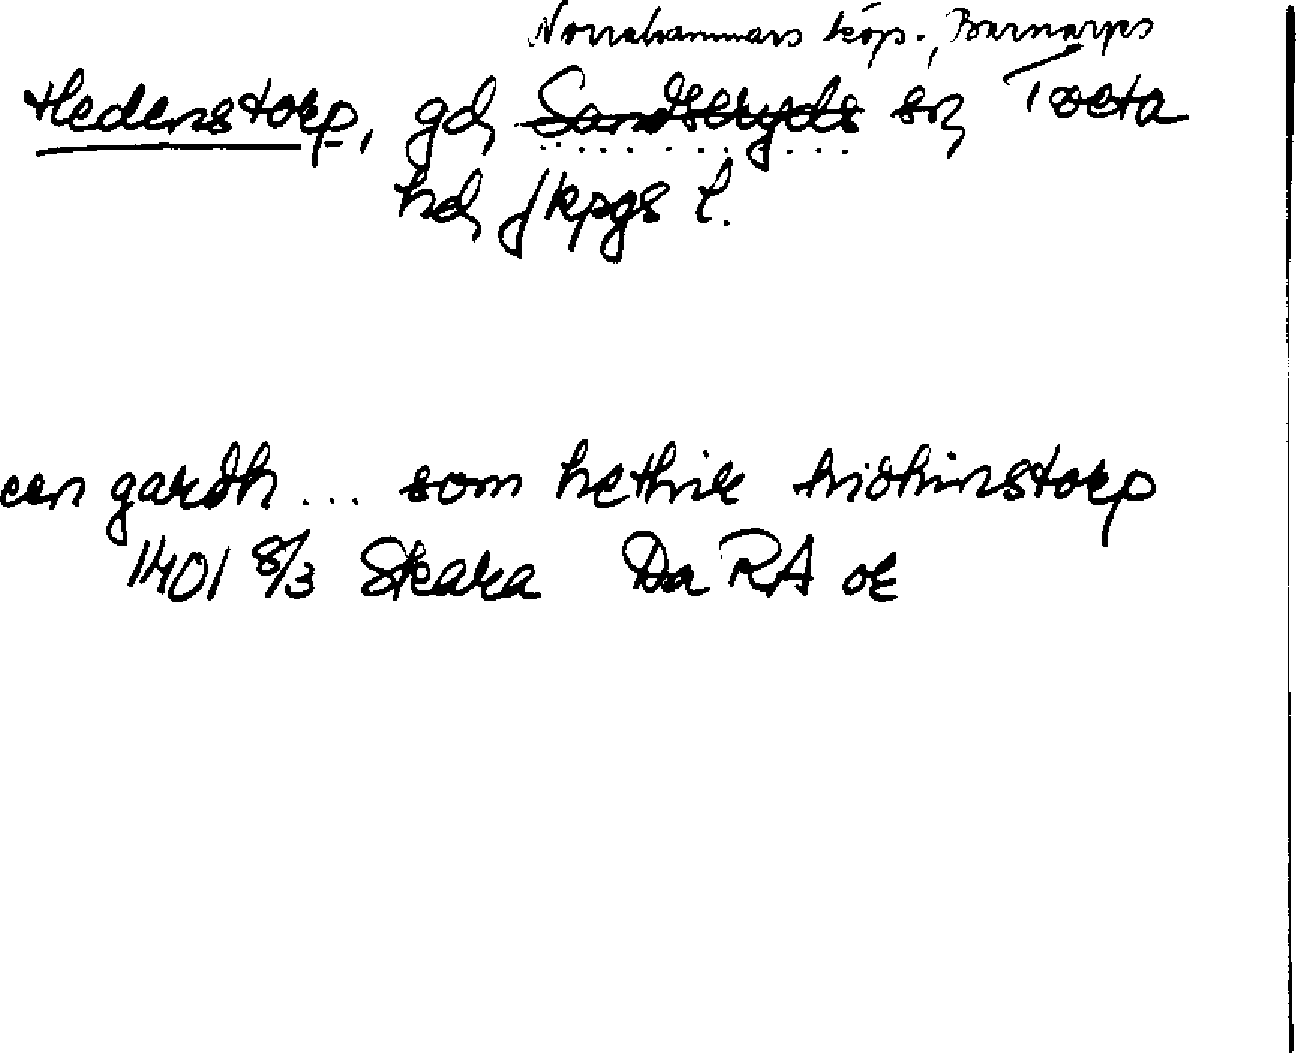 Norrahammars köp., Barnarps
Hedenstorp, gd, Sandseryds sn, Tveta
hd, Jkpgs l.
een gardh ... som hethir hidhinstorp
1401 8/3 Skara Da RA or